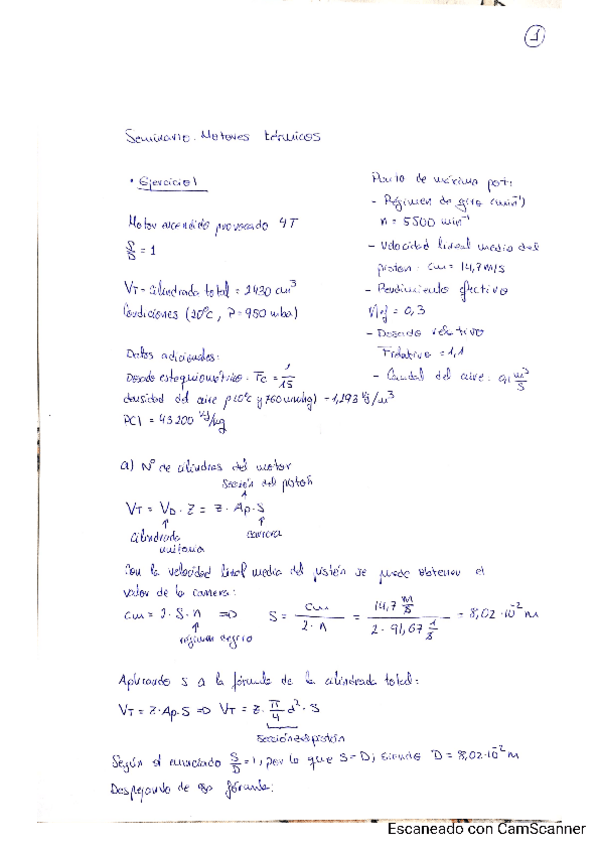 1
Seminario. Motores térmicos
• Ejercicio 1
Motor encendido provocado 4T
S/D = 1
VT = cilindrada total = 2430 cm³
Condiciones (20°C, P = 950 mba)
Datos adicionales:
Dosado estequiométrico. Fc = 1/15
densidad del aire ρ(0°C y 760mmHg) = 1,293 kg/m³
PCI = 43200 kJ/kg
Punto de máxima pot:
- Régimen de giro (min⁻¹)
n = 5500 min⁻¹
- Velocidad lineal media del
piston. cm = 14,7 m/s
- Rendimiento efectivo
ηef = 0,3
- Dosado relativo
Frelativo = 1,1
- Caudal del aire. 0,1 m³/s
a) Nº de cilindros del motor
sección del pistón
VT = VD · Z = Z · Ap · S
cilindrada unitaria
carrera
Con la velocidad lineal media del pistón se puede obtener el
valor de la carrera:
cm = 2 · S · n => S = cm / 2 · n = 14,7 m/s / 2 · 91,67 1/s = 8,02 · 10⁻² m
régimen de giro
Aplicando S a la fórmula de la cilindrada total:
VT = Z · Ap · S => VT = Z · π/4 d² · S
sección del pistón
Según el enunciado S/D = 1, por lo que S = D; siendo D = 8,02 · 10⁻² m
Despejando de esa fórmula:
Escaneado con CamScanner